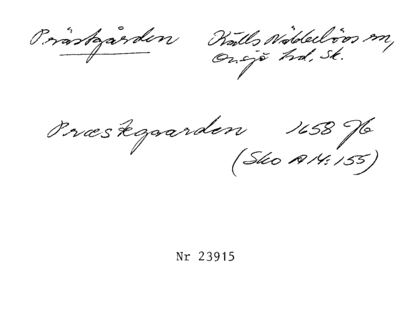 Prästgården Källs Nöbbelövs sn,
Onsjö hd, Sk.
Præstgaarden 1658 Jb
(Sko A 14: 155)
Nr 23915